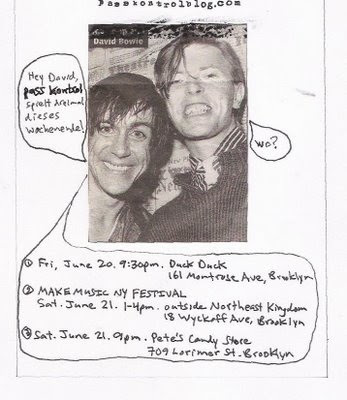 Passkontrolblog.com
David Bowie
Hey David,
pass kontrol
spielt dreimal
dieses
wochenende!
wo?
① Fri, June 20. 9:30pm. Duck Duck
161 Montrose Ave, Brooklyn
② MAKE MUSIC NY FESTIVAL
Sat. June 21. 1-4pm. outside Northeast Kingdom
18 Wyckoff Ave, Brooklyn
③ Sat. June 21. 9pm. Pete's Candy Store
709 Lorimer St. Brooklyn